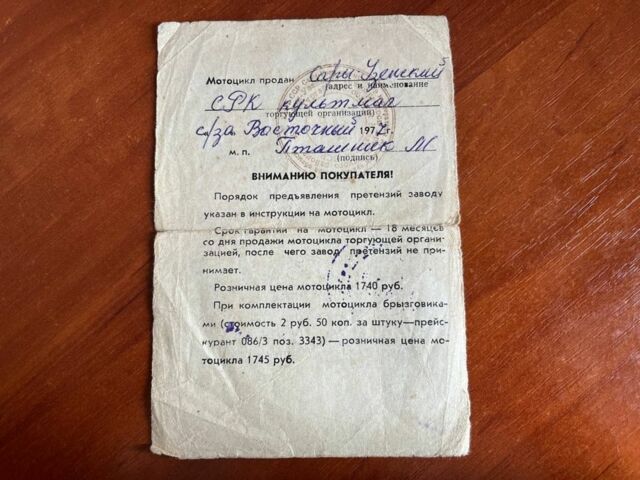 Мотоцикл продан Сары-Узенский
(адрес и наименование
СРК культмаг
торгующей организации)
с/за Восточный 1972г.
м. п. Пташник М
(подпись)
ВНИМАНИЮ ПОКУПАТЕЛЯ!
Порядок предъявления претензий заводу
указан в инструкции на мотоцикл.
Срок гарантии на мотоцикл — 18 месяцев
со дня продажи мотоцикла торгующей органи-
зацией, после чего завод претензий не при-
нимает.
Розничная цена мотоцикла 1740 руб.
При комплектации мотоцикла брызговика-
ми (стоимость 2 руб. 50 коп. за штуку—прейс-
курант 086/3 поз. 3343) — розничная цена мо-
тоцикла 1745 руб.